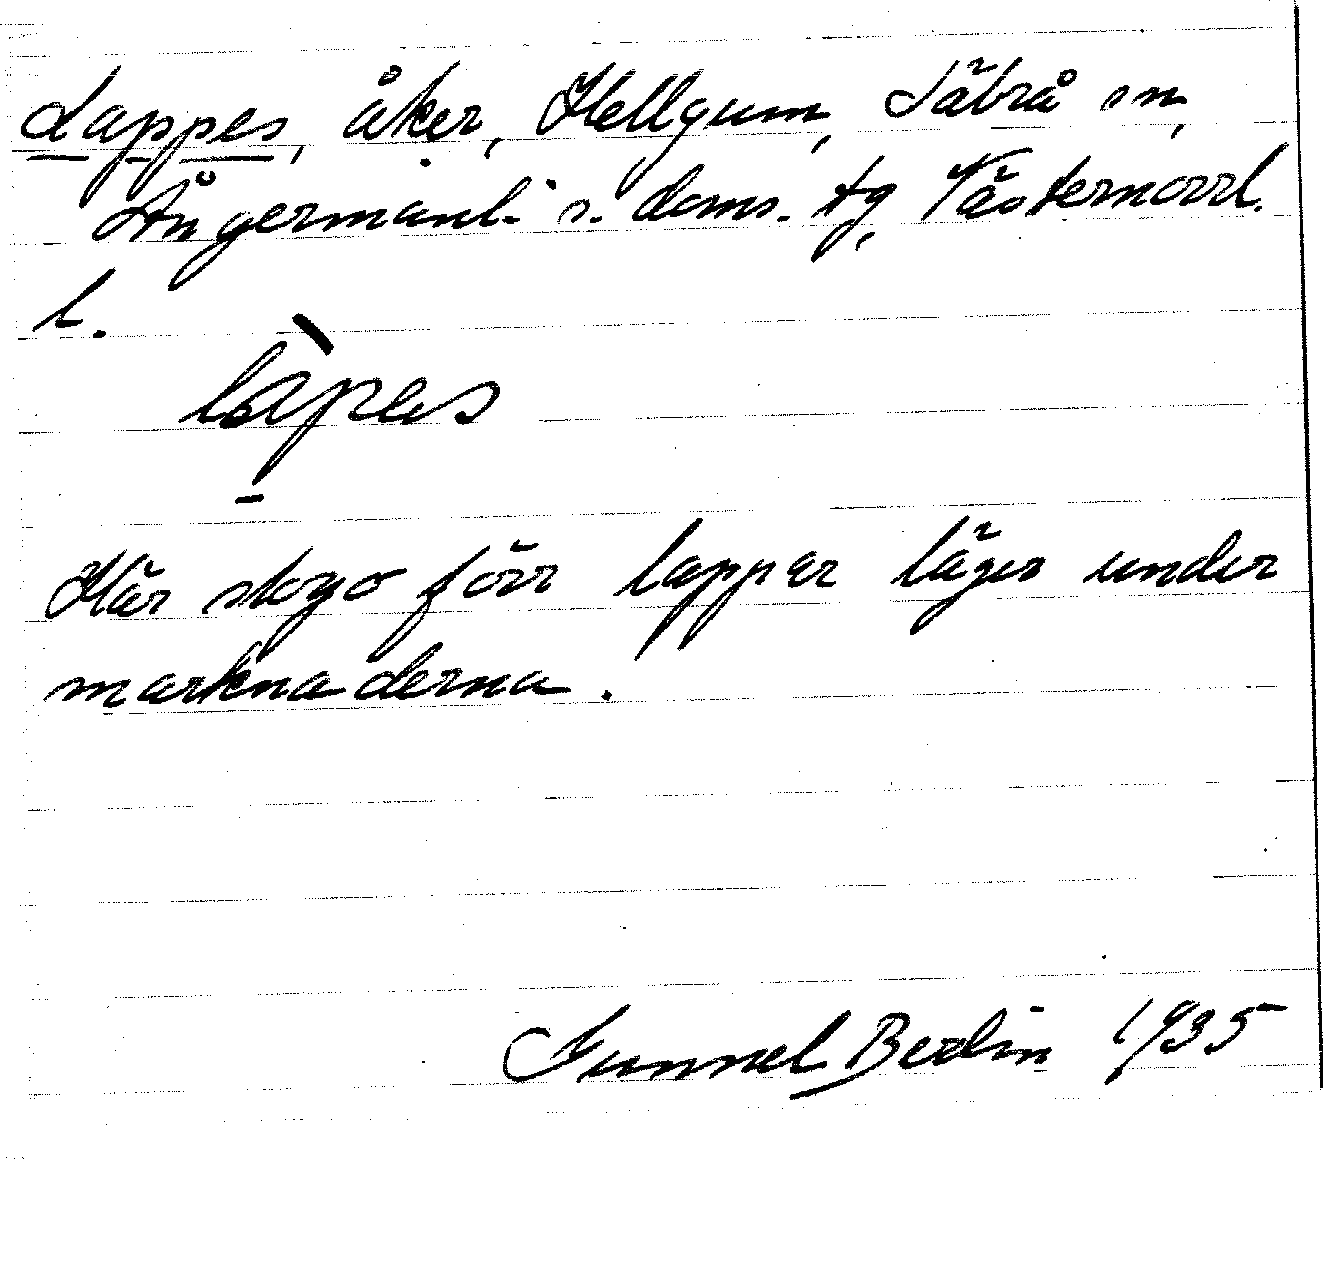 Lappes, åker, Hellgum, Säbrå sn,
Ångermanl. s. doms. tg, Västernorrl.
l.
làpes
Här slogo förr lapper läger under
marknaderna.
Gunnel Berlin 1935